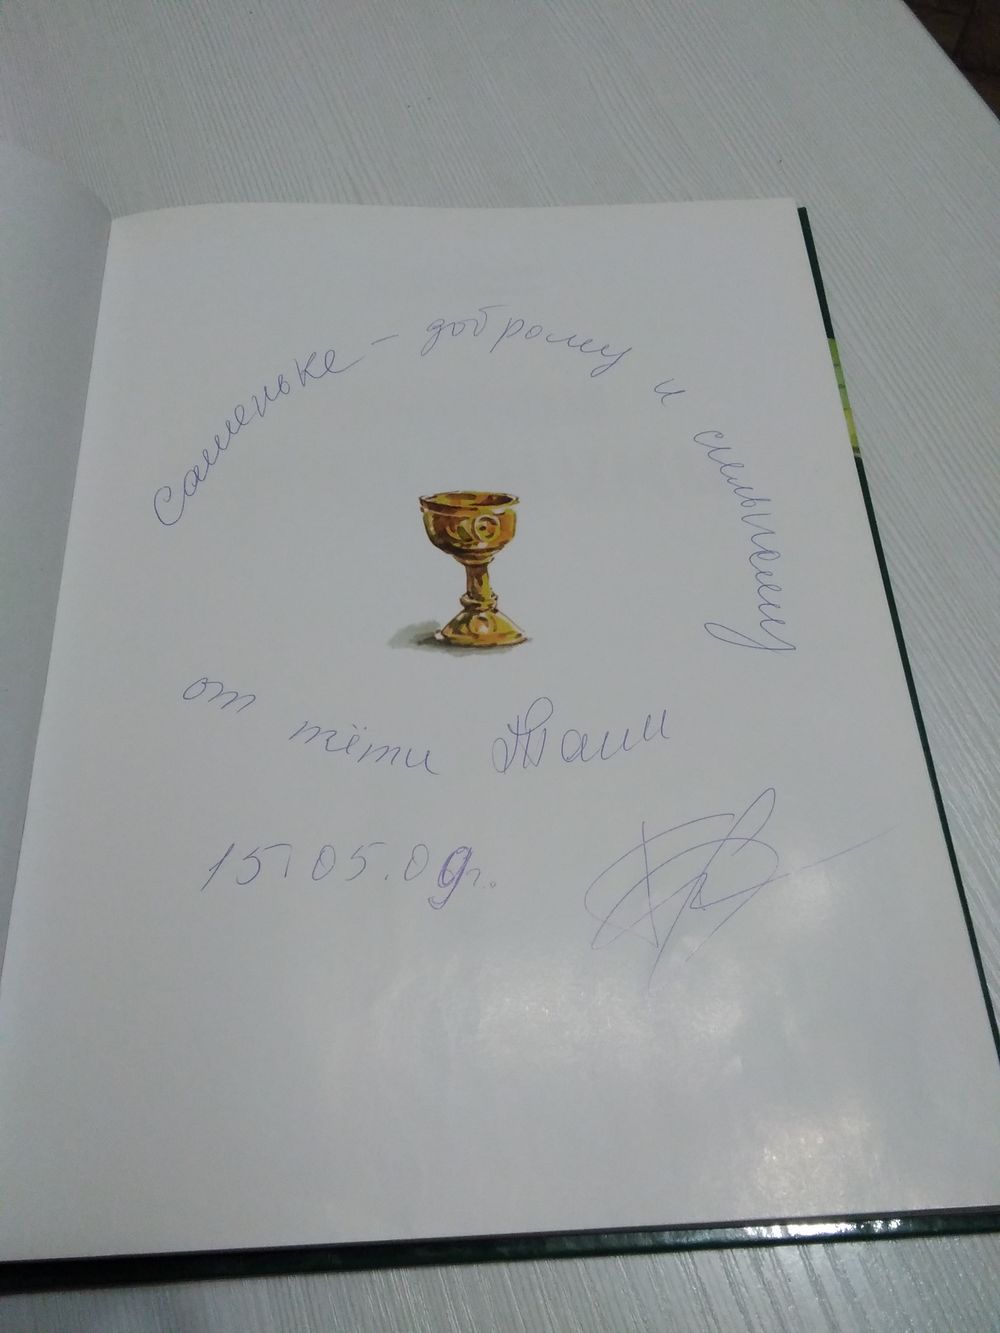 Сашеньке - доброму и смелому
от тёти Тани
15.05.09г.